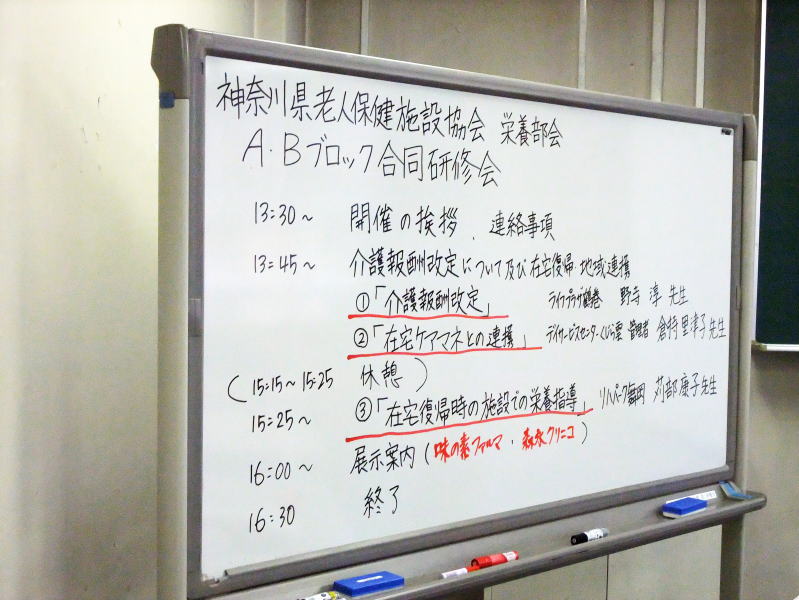 神奈川県老人保健施設協会 栄養部会
A・Bブロック合同研修会
13:30～ 開催の挨拶、連絡事項
13:45～ 介護報酬改定について及び在宅復帰・地域連携
①「介護報酬改定」 ライフプラザ鶴巻 野寺 淳 先生
②「在宅ケアマネとの連携」 デイサービスセンターくじら雲 管理者 倉持里津子先生
(15:15～15:25 休憩)
15:25～ ③「在宅復帰時の施設での栄養指導」 リハパーク舞岡 苅部康子先生
16:00～ 展示案内(味の素ファルマ・森永クリニコ)
16:30 終了